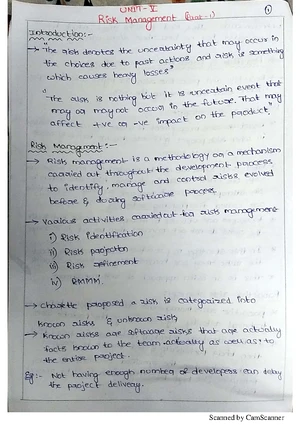 UNIT-V
Risk Management (part-1)
①
Introduction:-
→ "The risk denotes the uncertainty that may occur in
the choices due to past actions and risk is something
which causes heavy losses"
"The risk is nothing but it is uncertain event that
may or may not occur in the future. That may
affect +ve or -ve impact on the product."
Risk Management:-
→ Risk management is a methodology or a mechanism
carried out throughout the development process
to identify, manage and control risks evolved
before & during software process.
→ Various activities carried out for risk management
i) Risk identification
ii) Risk projection
iii) Risk refinement
iv) RMMM.
→ Charette proposed a risk is categorized into
known risks & unknown risks
→ Known risks are software risks that are actually
facts known to the team actually as well as to
the entire project.
Eg:- Not having enough number of developers can delay
the project delivery.
Scanned by CamScanner